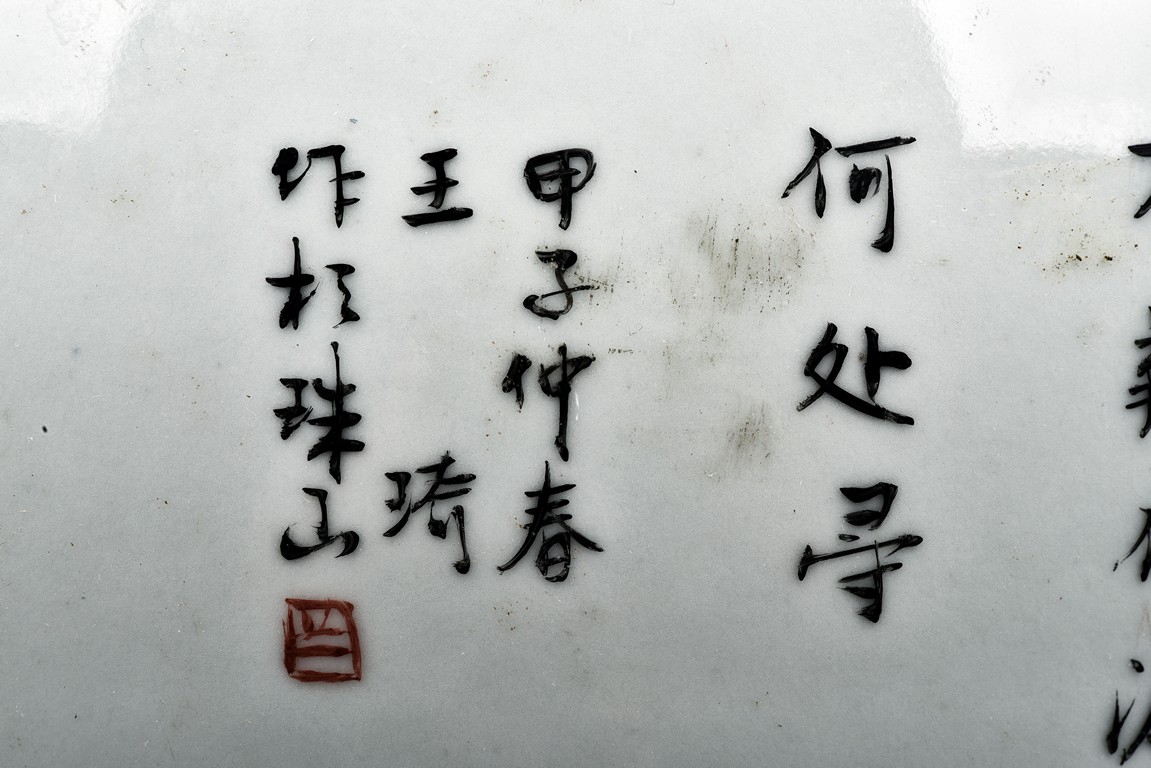 何处寻
甲子仲春
王琦
作于珠山